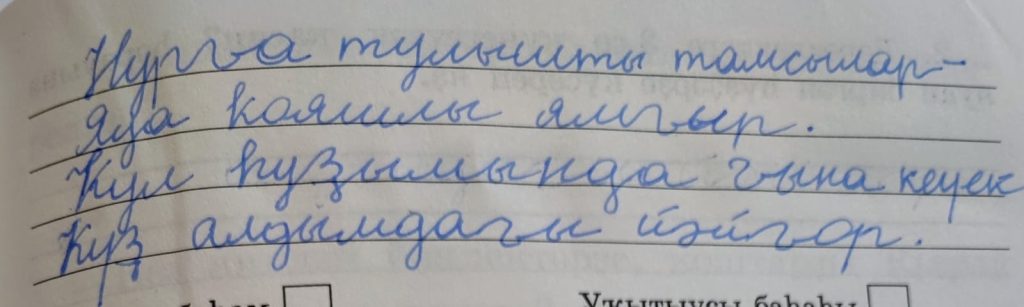 Нурға тулышты тамсылар–
яуа ҡояшлы ямғыр.
Ҡул һуҙымында ғына кеүек
Күҙ алдымдағы йәйғор.
Уҡытыусы баһаһы